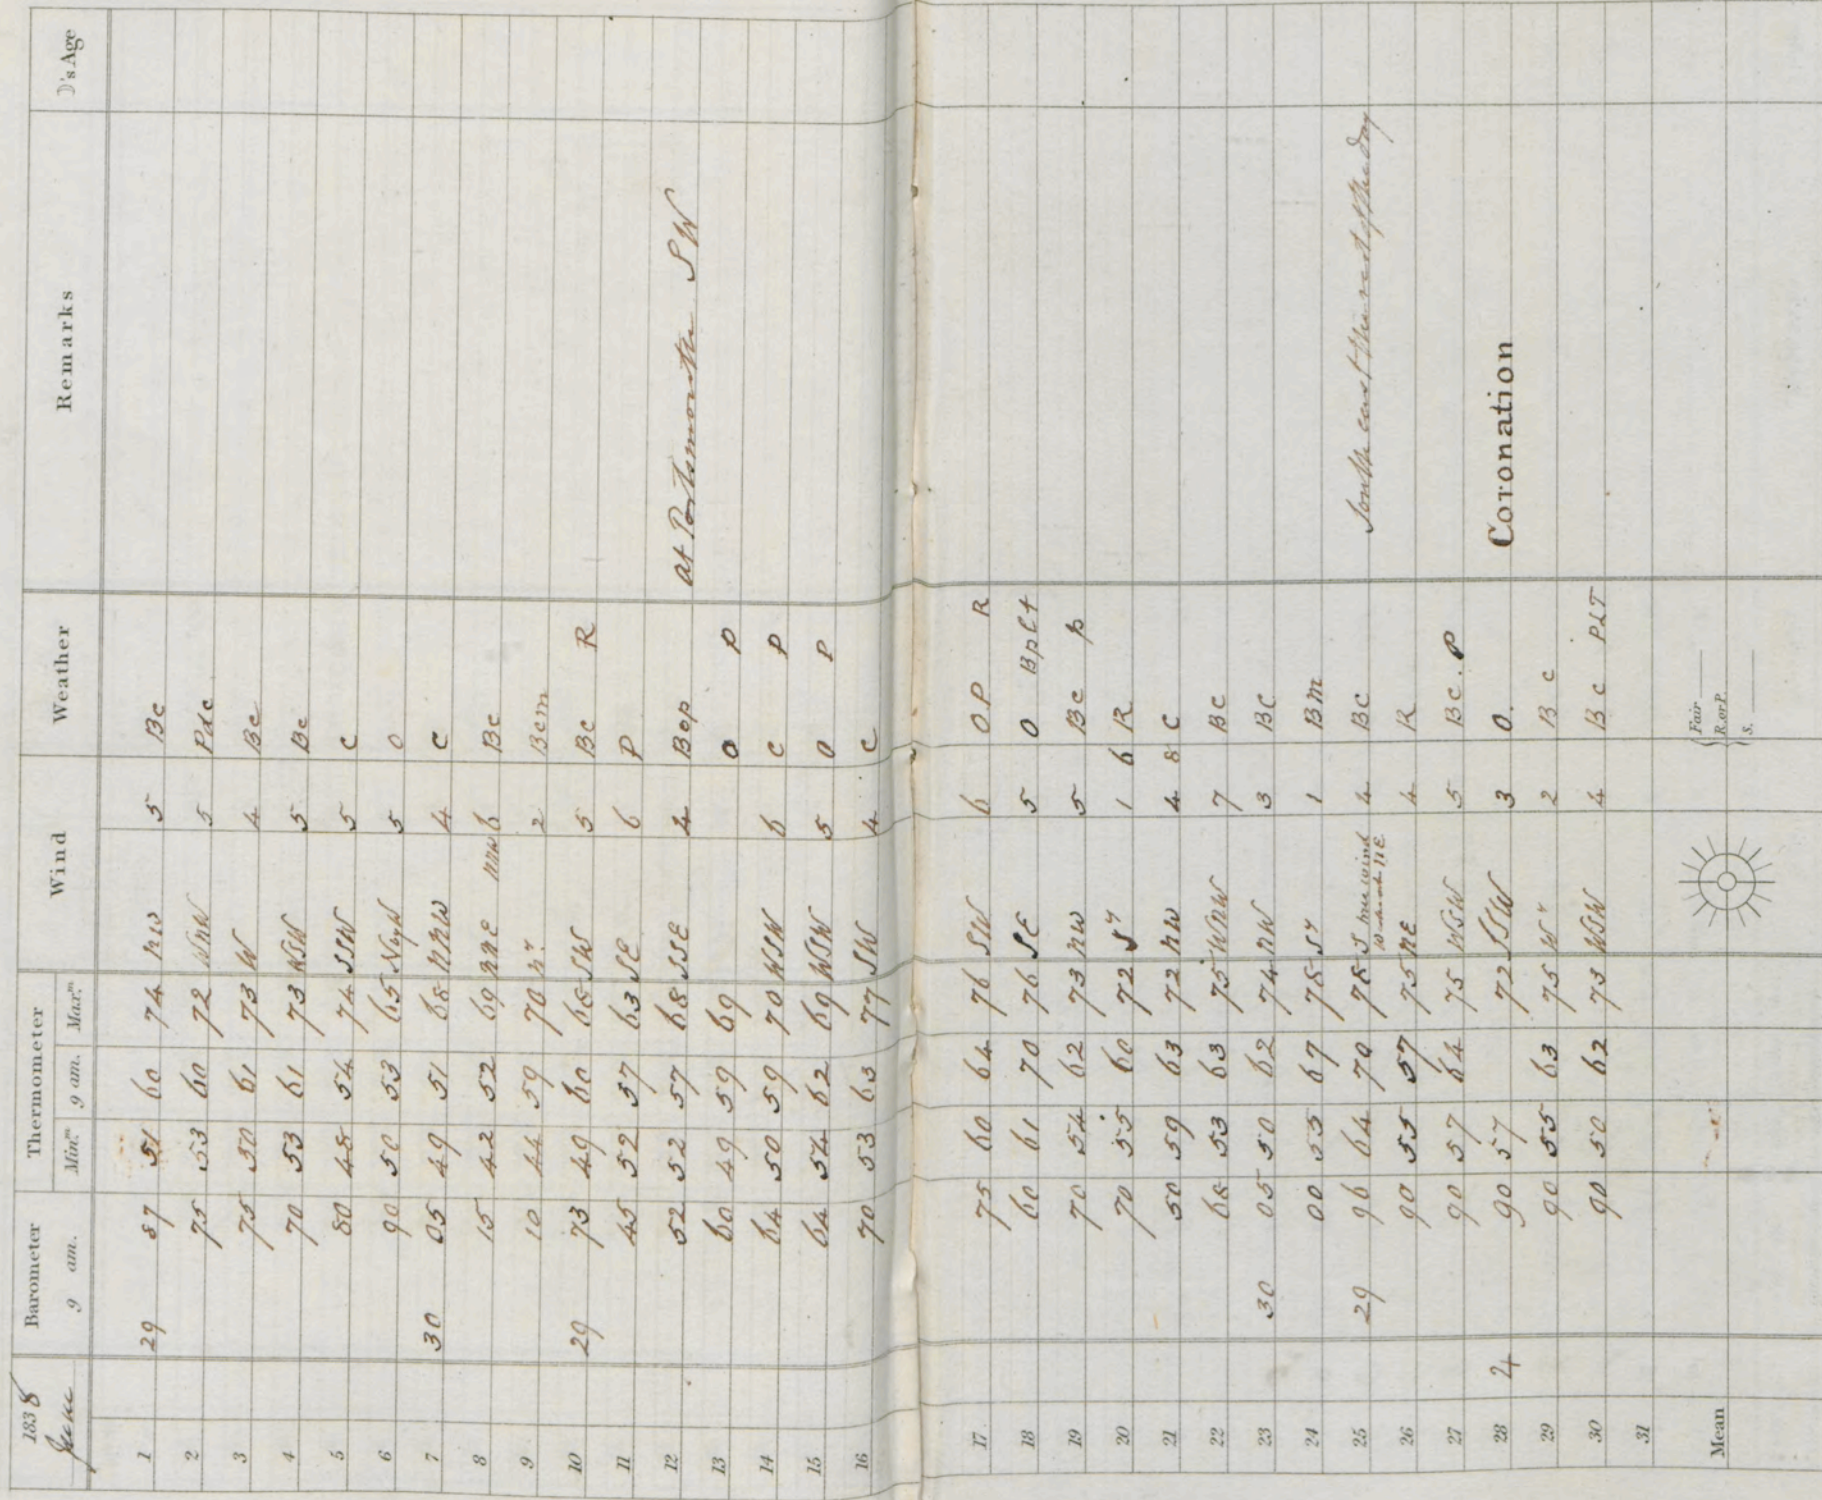 1838 June
Barometer Thermometer Wind Weather Remarks ☽'s Age
9 am. Min.m 9 am. Max.m
1 29 57 51 60 74 NW 5 Bc
2 75 53 60 72 WNW 5
3 75 50 61 73 W 4 Bc
4 70 53 61 73 WSW 5 Bc
5 80 48 54 74 SSW 5 C
6 90 50 53 65 5 O
7 30 05 49 51 68 NNW 4 C
8 15 42 52 69 NNE NNW 6 Bc
9 10 44 59 70 Ny. 2 Bcm
10 29 73 49 60 68 SW 5 Bc R
11 45 52 57 63 SE 6 P
12 52 52 57 68 SSE 4 Bop at Portsmouth SW
13 60 49 59 69 O P
14 64 50 59 70 WSW 6 C P
15 64 54 62 69 WSW 5 O P
16 70 53 63 77 SW 4 C
17 75 60 64 76 SW 6 OP R
18 60 61 70 76 SE 5 O Bplt
19 70 54 62 73 NW 5 Bc p
20 70 55 60 72 Sy 1 6 R
21 50 59 63 72 NW 4 8 C
22 68 53 63 75 WNW 7 BC
23 30 05 50 62 74 NW 3 BC
24 00 53 67 78 Sy 1 BM
25 29 96 64 70 78 S 4 BC South east the rest of the day
26 90 55 57 75 NE 4 R
27 90 57 64 75 WSW 5 BC. P
28 4 90 57 72 SSW 3 O. Coronation
29 90 55 63 75 Wy 2 B c
30 90 50 62 73 WSW 4 B c PLT
31
Mean
Fair
R.or P.
S.